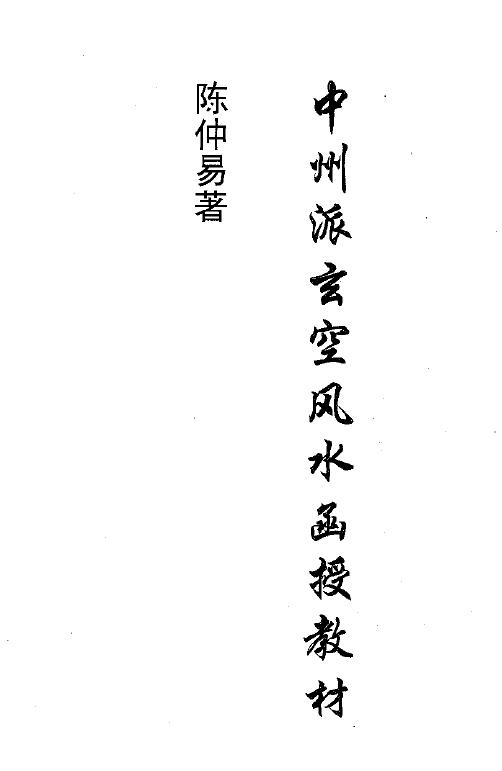 中州派玄空风水函授教材
陈仲易著